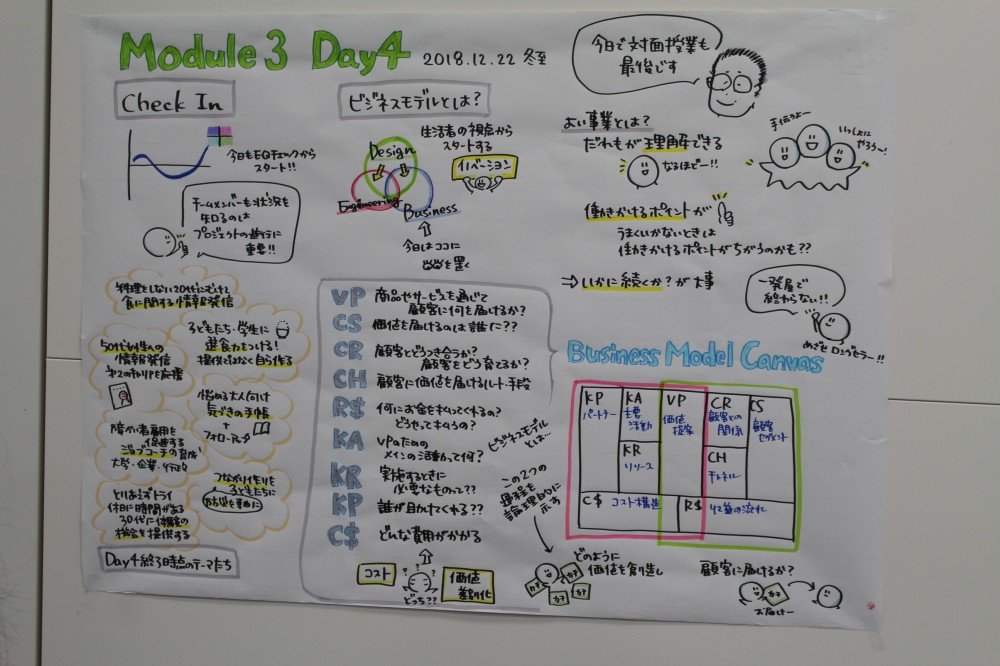 Module 3 Day4 2018.12.22 冬至
今日で対面授業も
最後です
Check In
今日もEQチェックから
スタート!!
チームメンバーも状況を
知るのは
プロジェクトの進行に
重要!!
ビジネスモデルとは?
生活者の視点から
スタートする
イノベーション
Design
Engineering
Business
今日はココに
を置く
よい事業とは?
だれもが理解できる
なるほどー!!
手伝うよー
いっしょに
やろうー!
働きかけるポイントが
うまくいかないときは
働きかけるポイントがちがうのかも??
⇒いかに続くか?が大事
一発屋で
終わらない!!
めざせロングセラー!!
料理をしない20代にむけて
食に関する情報発信
子どもたち・学生に
選食力をつける!
提供ではなく自ら作る
50代女性への
情報発信
第2のキャリアを応援
悩める大人向け
気づきの手帳
+
フォローアップ
障がい者雇用を
促進する
ジョブコーチの育成
大学・企業・行政
つながり作りを
子どもたちに
とりあえずトライ
休日に時間がある
30代に体験の
機会を提供する
Day4終了時点のテーマたち
VP 商品やサービスを通じて
顧客に何を届けるか?
CS 価値を届けるのは誰に??
CR 顧客とどうつき合うか?
顧客をどう育てるか?
CH 顧客に価値を届けるルート・手段
R$ 何にお金を払ってくれるの?
どうやって払うの?
KA VPのための
メインの活動って何?
KR 実施するときに
必要なものって??
KP 誰が助けてくれる??
C$ どんな費用がかかる
コスト
どっち??
価値
差別化
ビジネスモデル
とは…
この2つの
過程を
論理的に
示す
Business Model Canvas
KP
パートナー
KA
主要
活動
KR
リソース
VP
価値
提案
CR
顧客との
関係
CH
チャネル
CS
顧客
セグメント
C$ コスト構造
R$ 収益の流れ
どのように
価値を創造し
カチ
カチ
カチ
顧客に届けるか?
カチ
お届けー